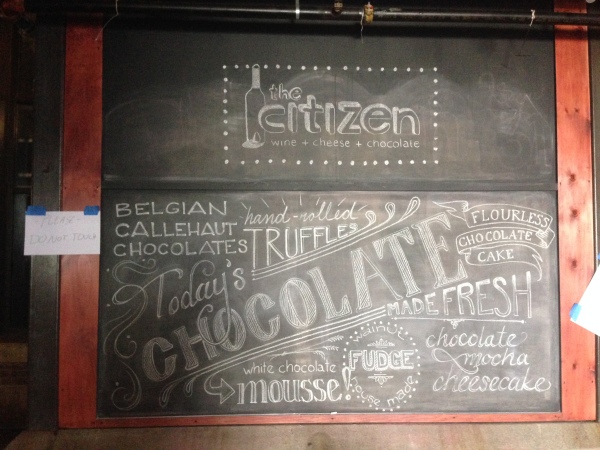 the
citizen
wine + cheese + chocolate
BELGIAN
CALLEHAUT
CHOCOLATES
hand-rolled
TRUFFLES
FLOURLESS
CHOCOLATE
CAKE
Today's
CHOCOLATE
MADE FRESH
white chocolate
mousse!
walnut
FUDGE
house made
chocolate
mocha
cheesecake
PLEASE
DO NOT TOUCH